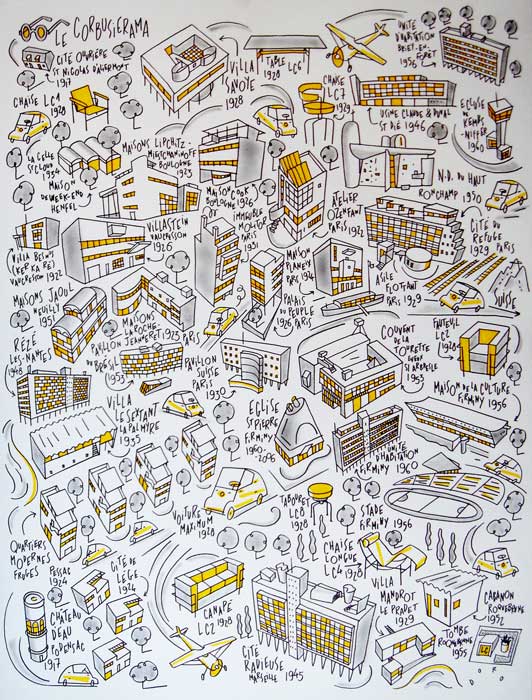 LE CORBUSIERAMA
CITE OUVRIÈRE
ST NICOLAS D'ALIERMONT
1917
VILLA
SAVOYE
1928
TABLE
LC6
1928
UNITE
D'HABITATION
BRIEY-EN-
FORET
1956
CHAISE LC1
1928
CHAISE
LC7
1929
USINE CLAUDE & DUVAL
ST DIÉ 1946
ECLUSE
DE
KEMBS
NIFFER
1960
LA CELLE
ST CLOUD
1934
MAISON
DE WEEK-END
HENFEL
MAISONS LIPCHITZ-
MIESTCHANINOFF
BOULOGNE
1923
MAISON COOK
BOULOGNE 1926
N.D. DU HAUT
RONCHAMP 1950
VILLA BESNUS
(KER KA RE)
VAUCRESSON 1922
VILLA STEIN
VAUCRESSON
1926
IMMEUBLE
MOLITOR
PARIS
1931
ATELIER
OZENFANT
PARIS 1922
MAISON
PLANEIX
PARIS 1924
CITE DU
REFUGE
1929 PARIS
ASILE
FLOTTANT
PARIS 1929
SUISSE
MAISONS JAOUL
NEUILLY
1951
MAISONS
LA ROCHE-
JEANNERET 1923 PARIS
PALAIS
DU PEUPLE
1926 PARIS
REZE
LES-NANTES
1948
PAVILLON
DU BRESIL
1953
PAVILLON
SUISSE
PARIS
1930
COUVENT
DE LA
TOURETTE
EVEUX
ST ARBRESLE
1953
FAUTEUIL
LC2
1928
MAISON DE LA CULTURE
FIRMINY 1956
VILLA
LE SEXTANT
LA PALMYRE
1935
EGLISE
ST PIERRE
FIRMINY
1960-
2006
UNITE
D'HABITATION
FIRMINY 1960
VOITURE
MAXIMUM
1928
TABOURET
LC8
1928
STADE
FIRMINY 1956
QUARTIERS
MODERNES
FRUGES
PESSAC
1924
CITE DE
LEGE
1924
CHAISE
LONGUE
LC4 1928
VILLA
MANDROT
LE PRADET
1929
CABANON
ROQUEBRUNE
1952
CHATEAU
D'EAU
PODENSAC
1917
CANAPE
LC2 1928
CITE
RADIEUSE
MARSEILLE 1945
TOMBE
ROQUEBRUNE
1955